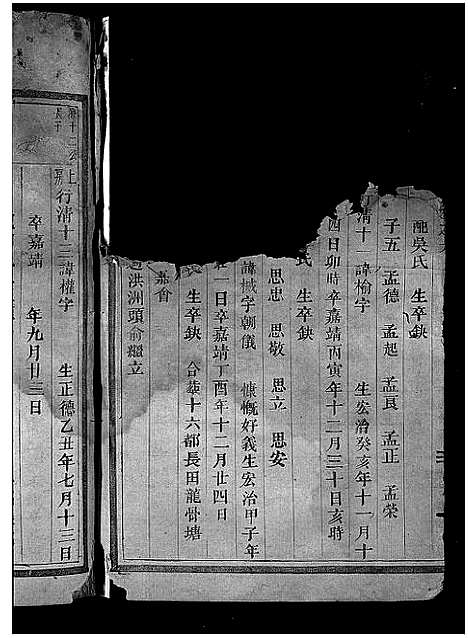 配吳氏 生卒缺
子五 孟德 孟起 孟良 孟正 孟榮
清十一諱愉字 生宏治癸亥年十一月十
四日卯時卒嘉靖丙寅年十二月三十日亥時
氏 生卒缺
思忠 思敬 思立 思安
諱椷字朝儀 慷慨好義生宏治甲子年
一日卒嘉靖丁酉年十二月廿四日
生卒缺 合葬十六都長田龍骨塘
洪洲頭俞繼立
上
行清十二諱權字 生正德乙丑年七月十三日
卒嘉靖 年九月廿三日